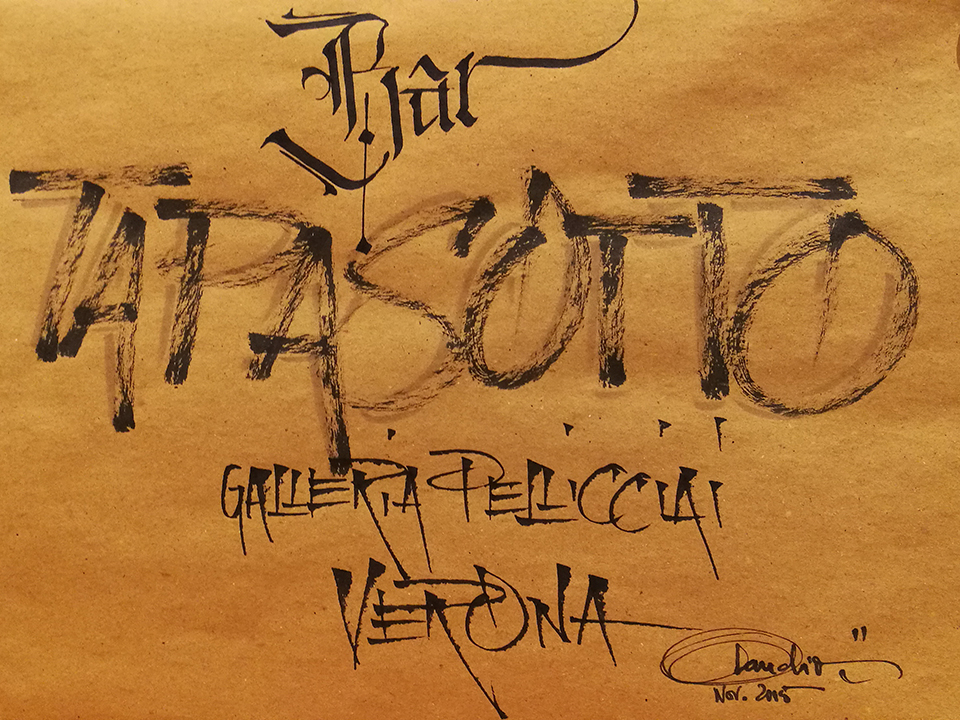 Bar
TAPASOTTO
GALLERIA PELLICCIAI
VERONA
Claudio
Nov. 2015